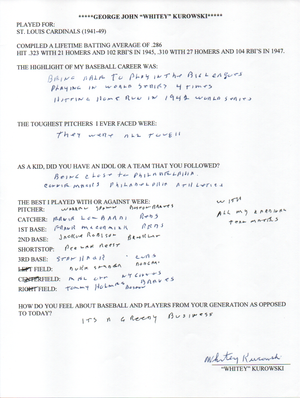 *****GEORGE JOHN "WHITEY" KUROWSKI*****
PLAYED FOR:
ST. LOUIS CARDINALS (1941-49)
COMPILED A LIFETIME BATTING AVERAGE OF .286
HIT .323 WITH 21 HOMERS AND 102 RBI'S IN 1945, .310 WITH 27 HOMERS AND 104 RBI'S IN 1947.
THE HIGHLIGHT OF MY BASEBALL CAREER WAS:
BEING ABLE TO PLAY IN THE BIG LEAGUES
PLAYING IN WORLD SERIES 4 TIMES
HITTING HOME RUN IN 1942 WORLD SERIES
THE TOUGHEST PITCHERS I EVER FACED WERE:
THEY WERE ALL TOUGH
AS A KID, DID YOU HAVE AN IDOL OR A TEAM THAT YOU FOLLOWED?
BEING CLOSE TO PHILADELPHIA
PHILADELPHIA ATHLETICS
THE BEST I PLAYED WITH OR AGAINST WERE:
PITCHER: WARREN SPAHN BRAVES
CATCHER: LOMBARDI REDS
1ST BASE: FRANK MCCORMICK REDS
2ND BASE: JACKIE ROBINSON BROOKLYN
SHORTSTOP: PEE WEE REESE
3RD BASE: STAN HACK CUBS
LEFT FIELD: DUKE SNIDER
CENTERFIELD: MEL OTT GIANTS
RIGHT FIELD: TOMMY HOLMES BRAVES
WITH
ALL MY CARDINAL
TEAM MATES
HOW DO YOU FEEL ABOUT BASEBALL AND PLAYERS FROM YOUR GENERATION AS OPPOSED
TO TODAY?
ITS A GREEDY BUSINESS
Whitey Kurowski
"WHITEY" KUROWSKI